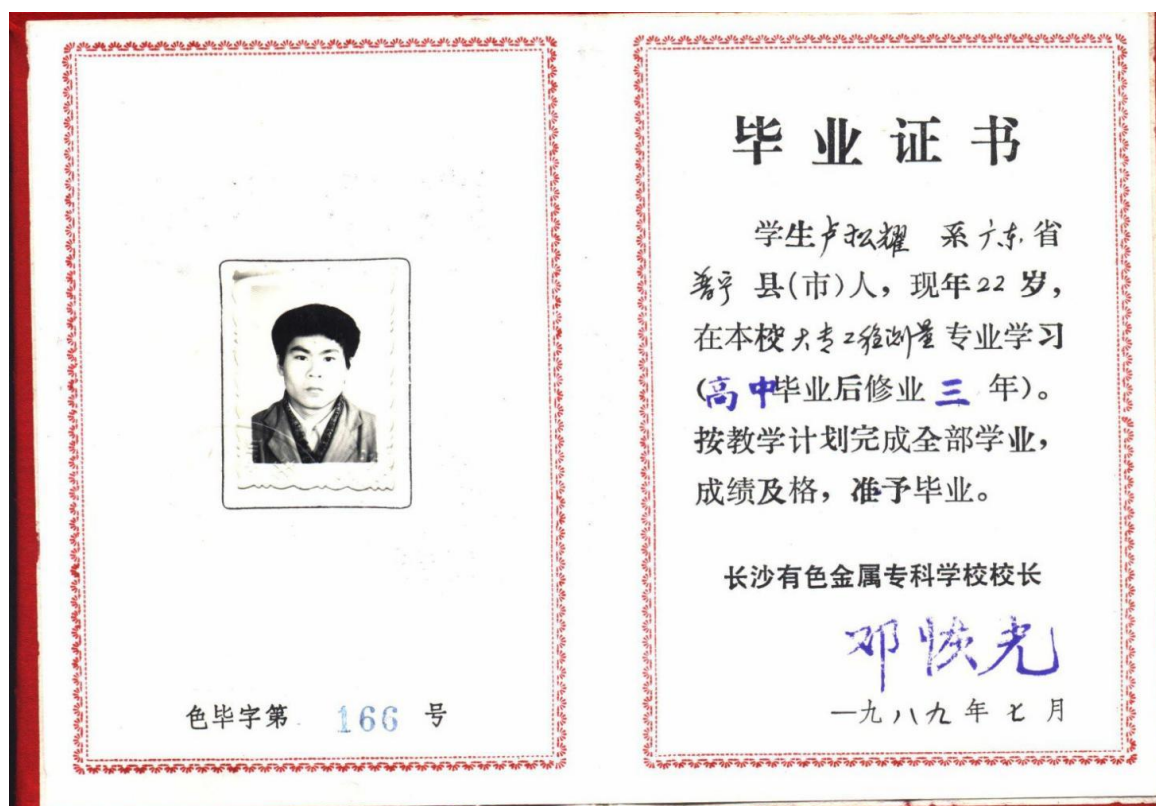 色毕字第 166 号
毕业证书
学生卢松耀 系广东省
普宁县(市)人，现年22岁，
在本校大专工程测量专业学习
(高中毕业后修业三年)。
按教学计划完成全部学业，
成绩及格，准予毕业。
长沙有色金属专科学校校长
邓
光
一九八九年七月